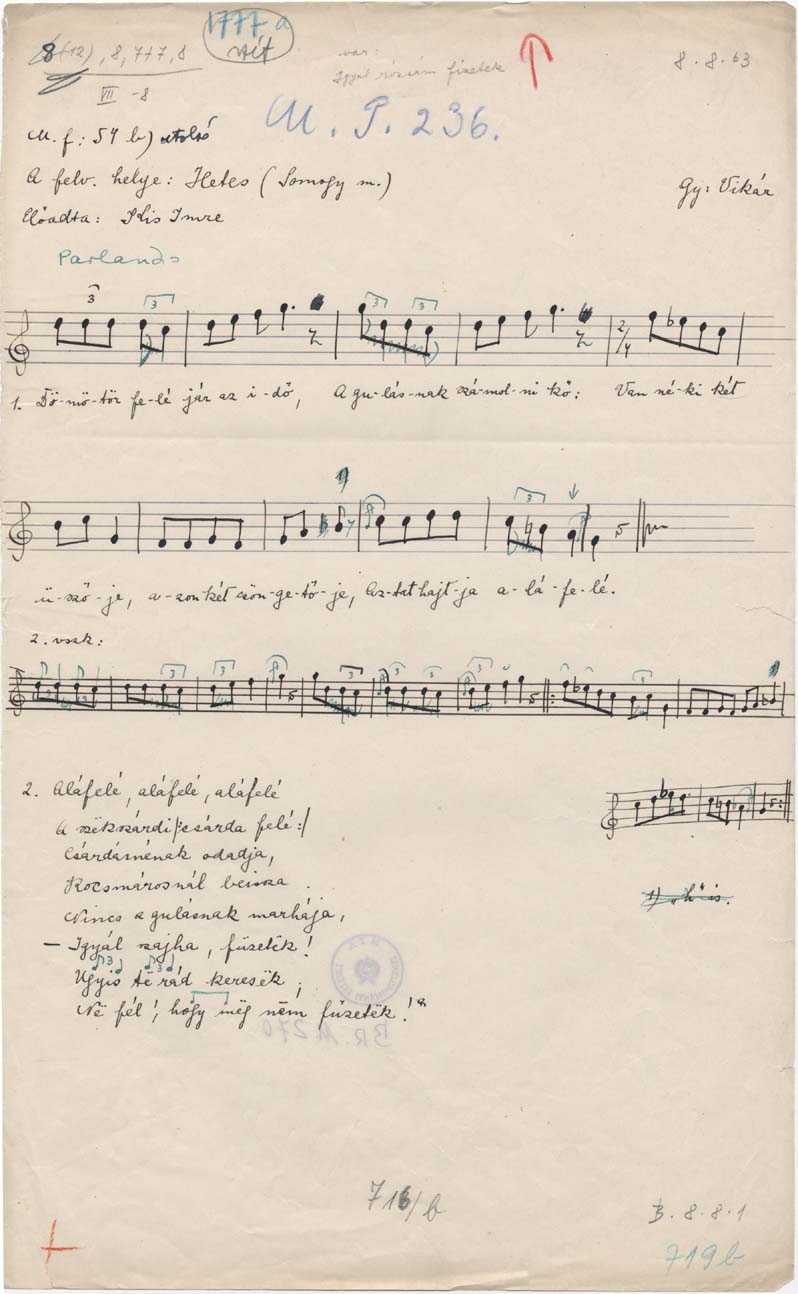 1777a
8 (12), 8, 7+7, 8
var:
8.8.63
Igyál rózsám fizetek
VII -8
M. P. 236.
M. f: 54 b) utolsó
A felv. helye: Hetes (Somogy m.)
Gy: Vikár
Előadta: Kis Imre
Parlando
1. Dö-mö-tör fe-lé jár az i-dő, A gu-lás-nak szá-mol-ni kő: Van né-ki két
ü-sző-je, a-zon két csön-ge-tő-je, Az-tat hajt-ja a-lá-fe-lé.
2. vszk:
2. Aláfelé, aláfelé, aláfelé
A szëkszárdi /:csárda felé:/
Csárdásnénak odadja,
Kocsmárosnál beissza.
Nincs a gulásnak marhája,
— Igyál szajha, fizeték!
Ugyis të rád keresëk,
Në fél!, hogy még nëm fizeték!
1) „h" is.
BR. M 270
716/b
B. 8.8.1
719b